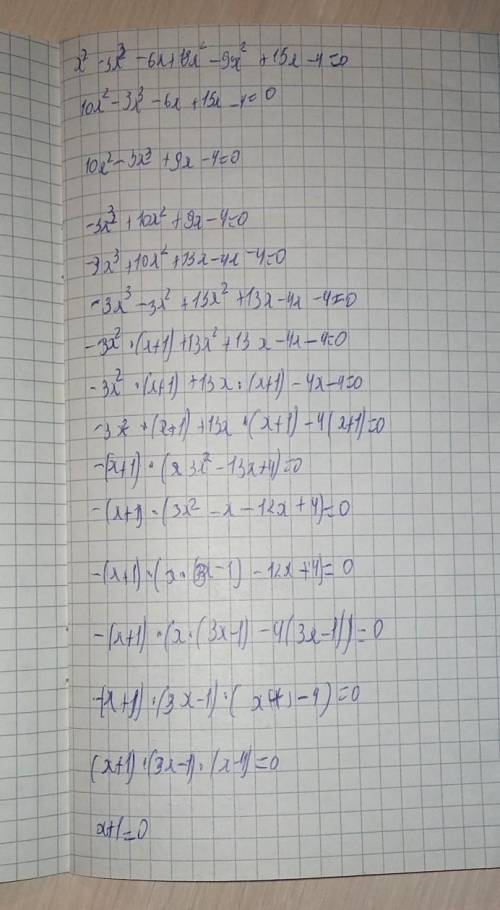 x² -3x³ -6x+18x² -9x² +15x -4=0
10x² -3x³ -6x +15x -4=0
10x² -3x³ +9x -4=0
-3x³ +10x² +9x-4=0
-3x³ +10x² +13x-4x -4=0
-3x³ -3x² +13x² +13x-4x -4=0
-3x² ·(x+1)+13x² +13x-4x-4=0
-3x² ·(x+1) +13x·(x+1) -4x-4=0
-3x² ·(x+1)+13x·(x+1)-4(x+1)=0
-(x+1)·(3x²-13x+4)=0
-(x+1)·(3x² -x-12x+4)=0
-(x+1)·(x·(3x-1) -12x+4)=0
-(x+1)·(x·(3x-1) -4(3x-1))=0
-(x+1)·(3x-1)·(x-4)=0
(x+1)·(3x-1)·(x-4)=0
x+1=0